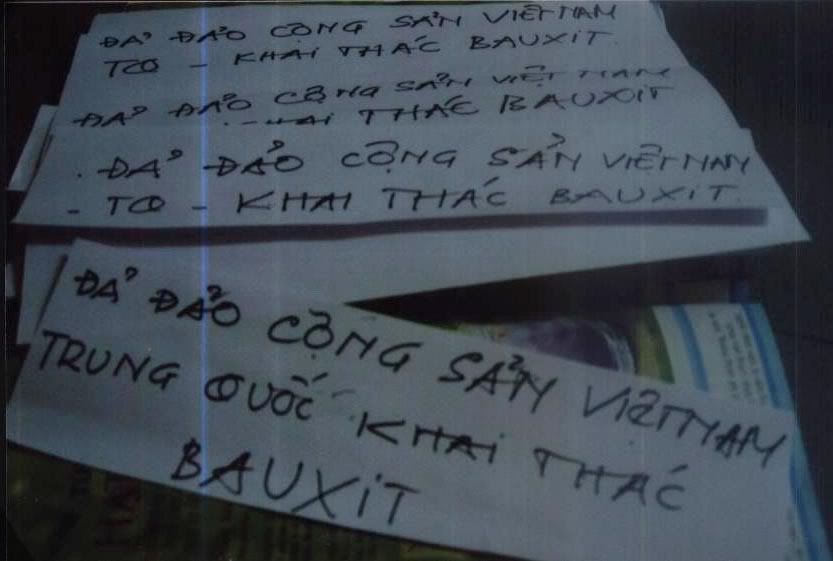 ĐẢ ĐẢO CỘNG SẢN VIỆT NAM
TQ - KHAI THÁC BAUXIT
ĐẢ ĐẢO CỘNG SẢN VIỆT NAM
KHAI THÁC BAUXIT
ĐẢ ĐẢO CỘNG SẢN VIỆT NAM
- TQ - KHAI THÁC BAUXIT
ĐẢ ĐẢO CỘNG SẢN VIỆT NAM
TRUNG QUỐC KHAI THÁC
BAUXIT